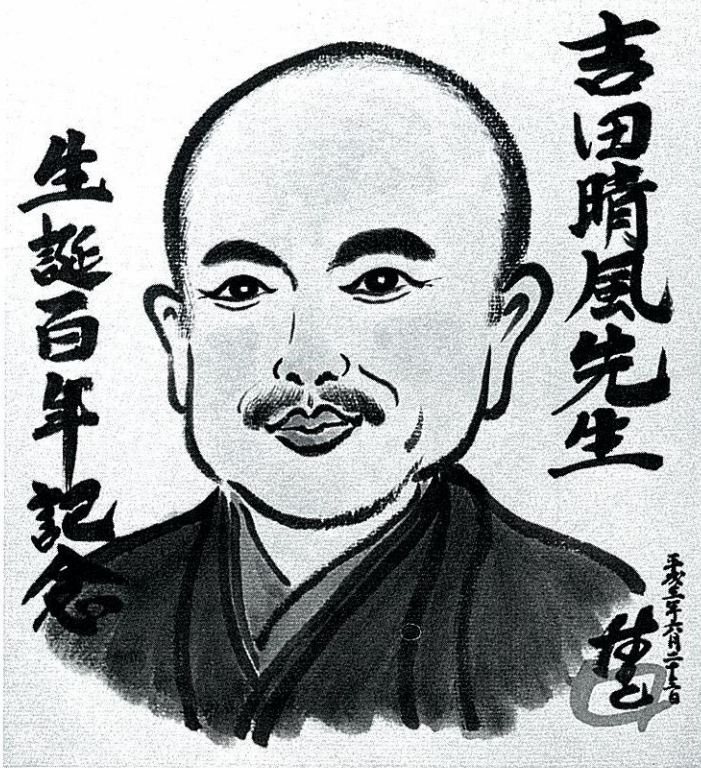 吉田晴風先生
生誕百年記念
平成三年六月二十三日